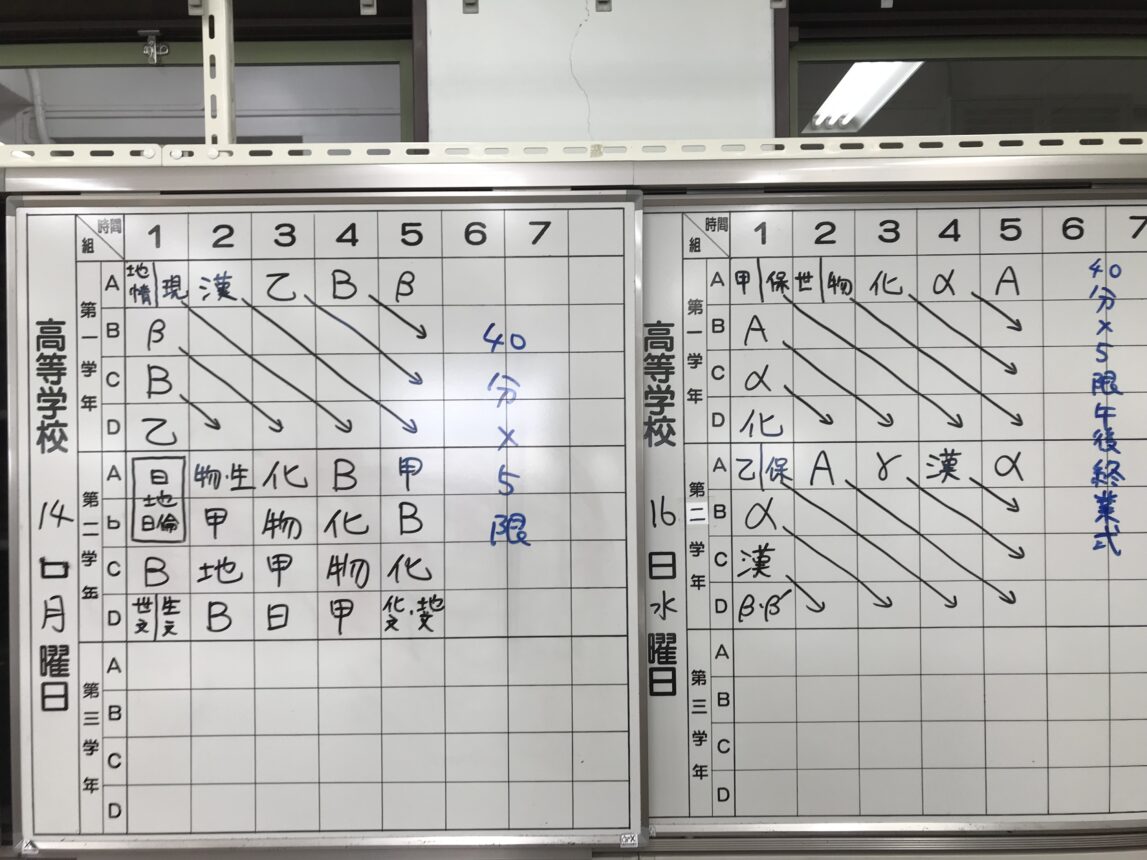 高等学校 14日 月曜日
組 時間 1 2 3 4 5 6 7
第一学年
A 地情 現 漢 乙 B β
B β
C B
D 乙
第二学年
A 日 物・生 化 B 甲
地
b 日倫 甲 物 化 B
C B 地 甲 物 化
D 世文 生文 B 日 甲 化文・地文
第三学年
A
B
C
D
40分×5限
高等学校 16日 水曜日
組 時間 1 2 3 4 5 6 7
第一学年
A 甲 保 世 物 化 α A
B A
C α
D 化
第二学年
A 乙 保 A γ 漢 α
B α
C 漢
D β・β'
第三学年
A
B
C
D
40分×5限午後終業式